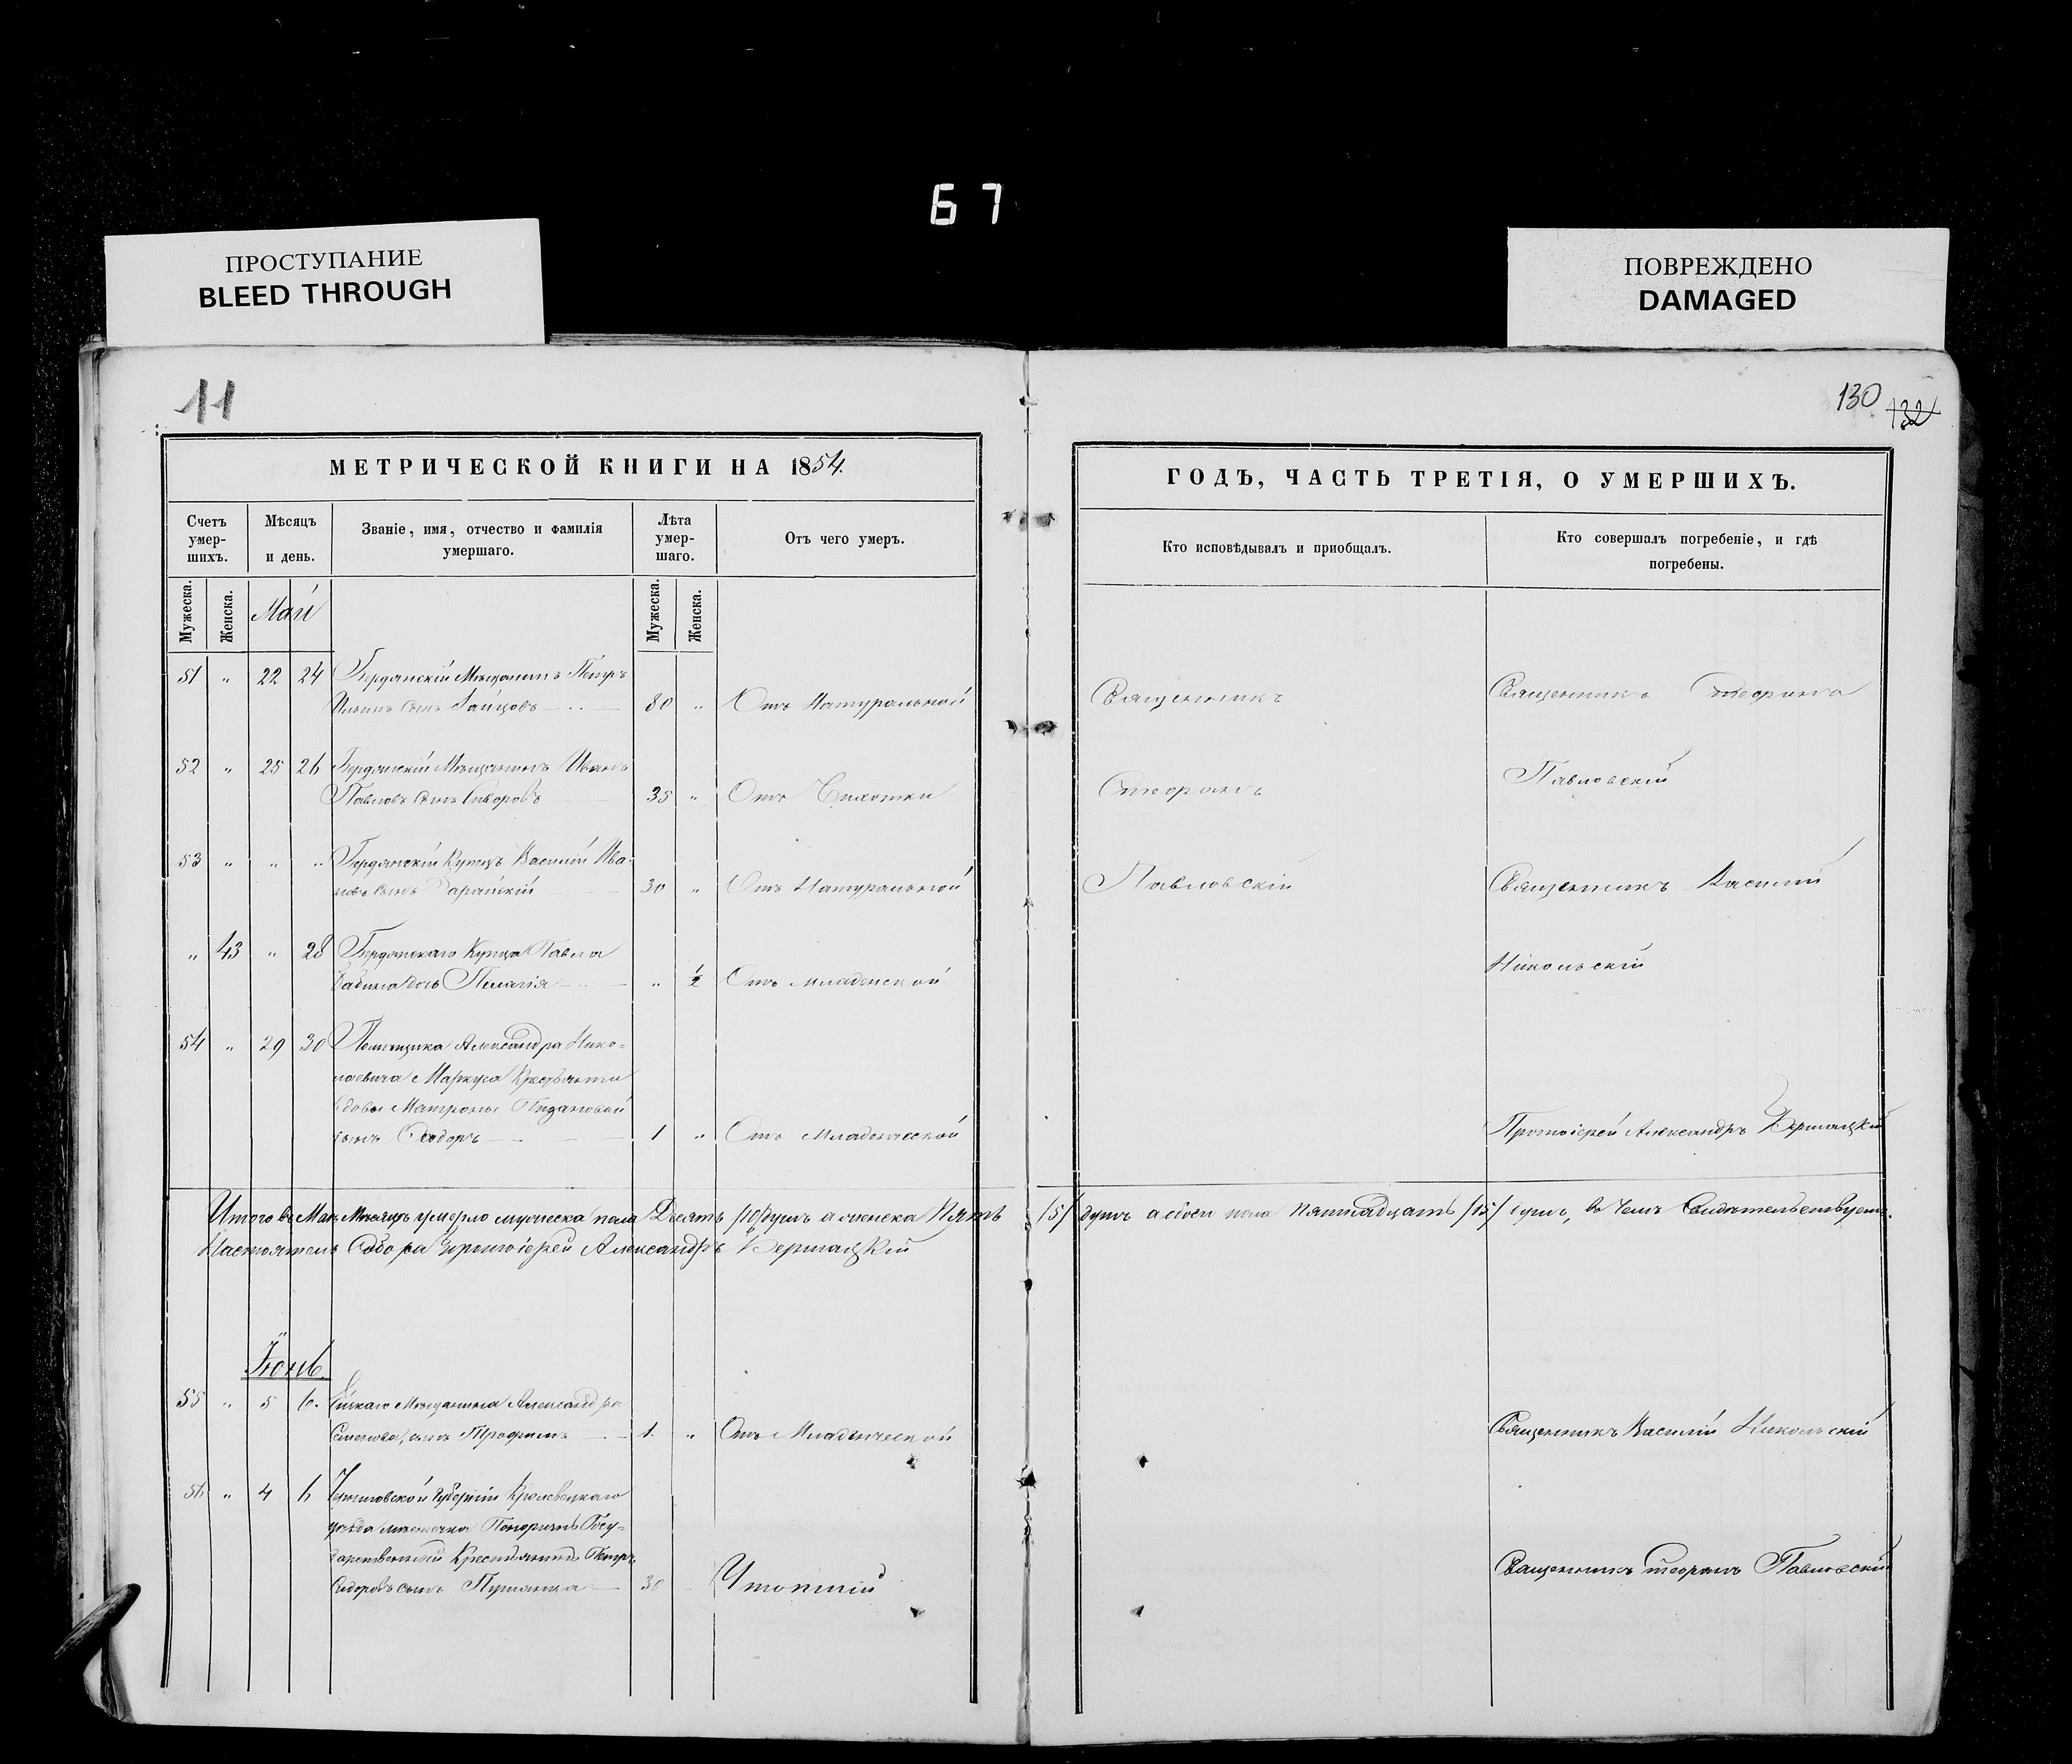 67
ПРОСТУПАНИЕ
BLEED THROUGH
ПОВРЕЖДЕНО
DAMAGED
11
130 132
МЕТРИЧЕСКОЙ КНИГИ НА 1854.
ГОДЪ, ЧАСТЬ ТРЕТІЯ, О УМЕРШИХЪ.
Счетъ умер-шихъ.
Мѣсяцъ и день.
Званіе, имя, отчество и фамилія умершаго.
Лѣта умер-шаго.
Отъ чего умеръ.
Кто исповѣдывалъ и приобщалъ.
Кто совершалъ погребеніе, и гдѣ погребены.
Мужеска. Женска. Мужеска. Женска.
Май
51 " 22 24 Бердянскій Мѣщанинъ Петръ
Ильинъ сынъ Зайцовъ 80 " Отъ Натуральной
Священникъ
Священникъ Стефанъ
52 " 25 26 Бердянскій Мѣщанинъ Иванъ
Павловъ сынъ 35 " Отъ Чихотки
Стефанъ
Павловскій
53 " " " Бердянскій Купецъ Василій Ива-
новъ сынъ Зарайскій 30 " Отъ Натуральной
Павловскій
Священникъ Василій
" 43 " 28 Бердянскаго Купца Павла
дочь Пелагія " ½ Отъ младенской
Никольскій
54 " 29 30 Помѣщика Александра Нико-
лаевича Маркуса Крестьянки
вдовы Матроны
сынъ Ѳеодоръ 1 " Отъ Младенческой
Протоіерей Александръ Вершацкій
Итого въ Маѣ Мѣсяцѣ умерло мужеска пола Десять /10/ душъ а женска Пять /5/ душъ а обоего пола Пятнадцать /15/ душъ, въ чемъ Свидетельствуетъ.
Настоятель Собора Протоіерей Александръ Вершацкій
Іюнь
55 " 5 6. Мѣщанина Александра
Семенова, сынъ Трофимъ 1. " Отъ Младенческой
Священникъ Василій Никольскій
56 " 4 6 Черниговской Губерніи Кролевецкаго
уѣзда мѣстечка Понорницы Госу-
дарственный Крестьянинъ Петръ
Сидоровъ сынъ 30 Утопшій
Священникъ Стефанъ Павловскій